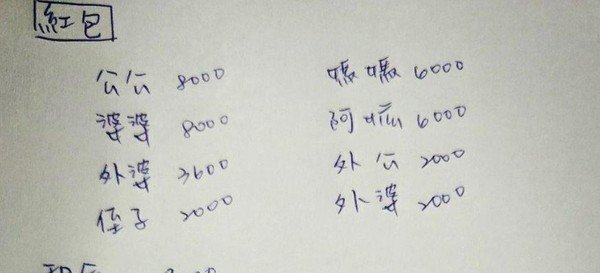 紅包
公公 8000 媽媽 6000
婆婆 8000 阿嬤 6000
外婆 3600 外公 2000
侄子 2000 外婆 2000